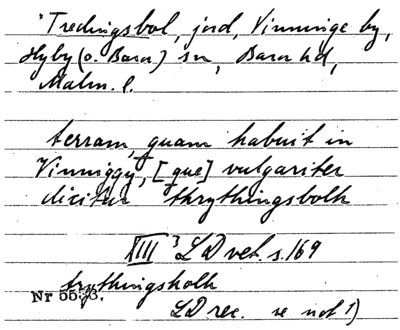 *Tredingsbol, jord, Vinninge by,
Hyby (o. Bara) sn, Bara hd,
Malm. l.
terram, quam habuit in
Vinniggy, [que] vulgariter
dicitur thrythingsbolh
XIII 3 LD vet. s. 169
trythingsholk
Nr 5573.
LD rec. se not 1)